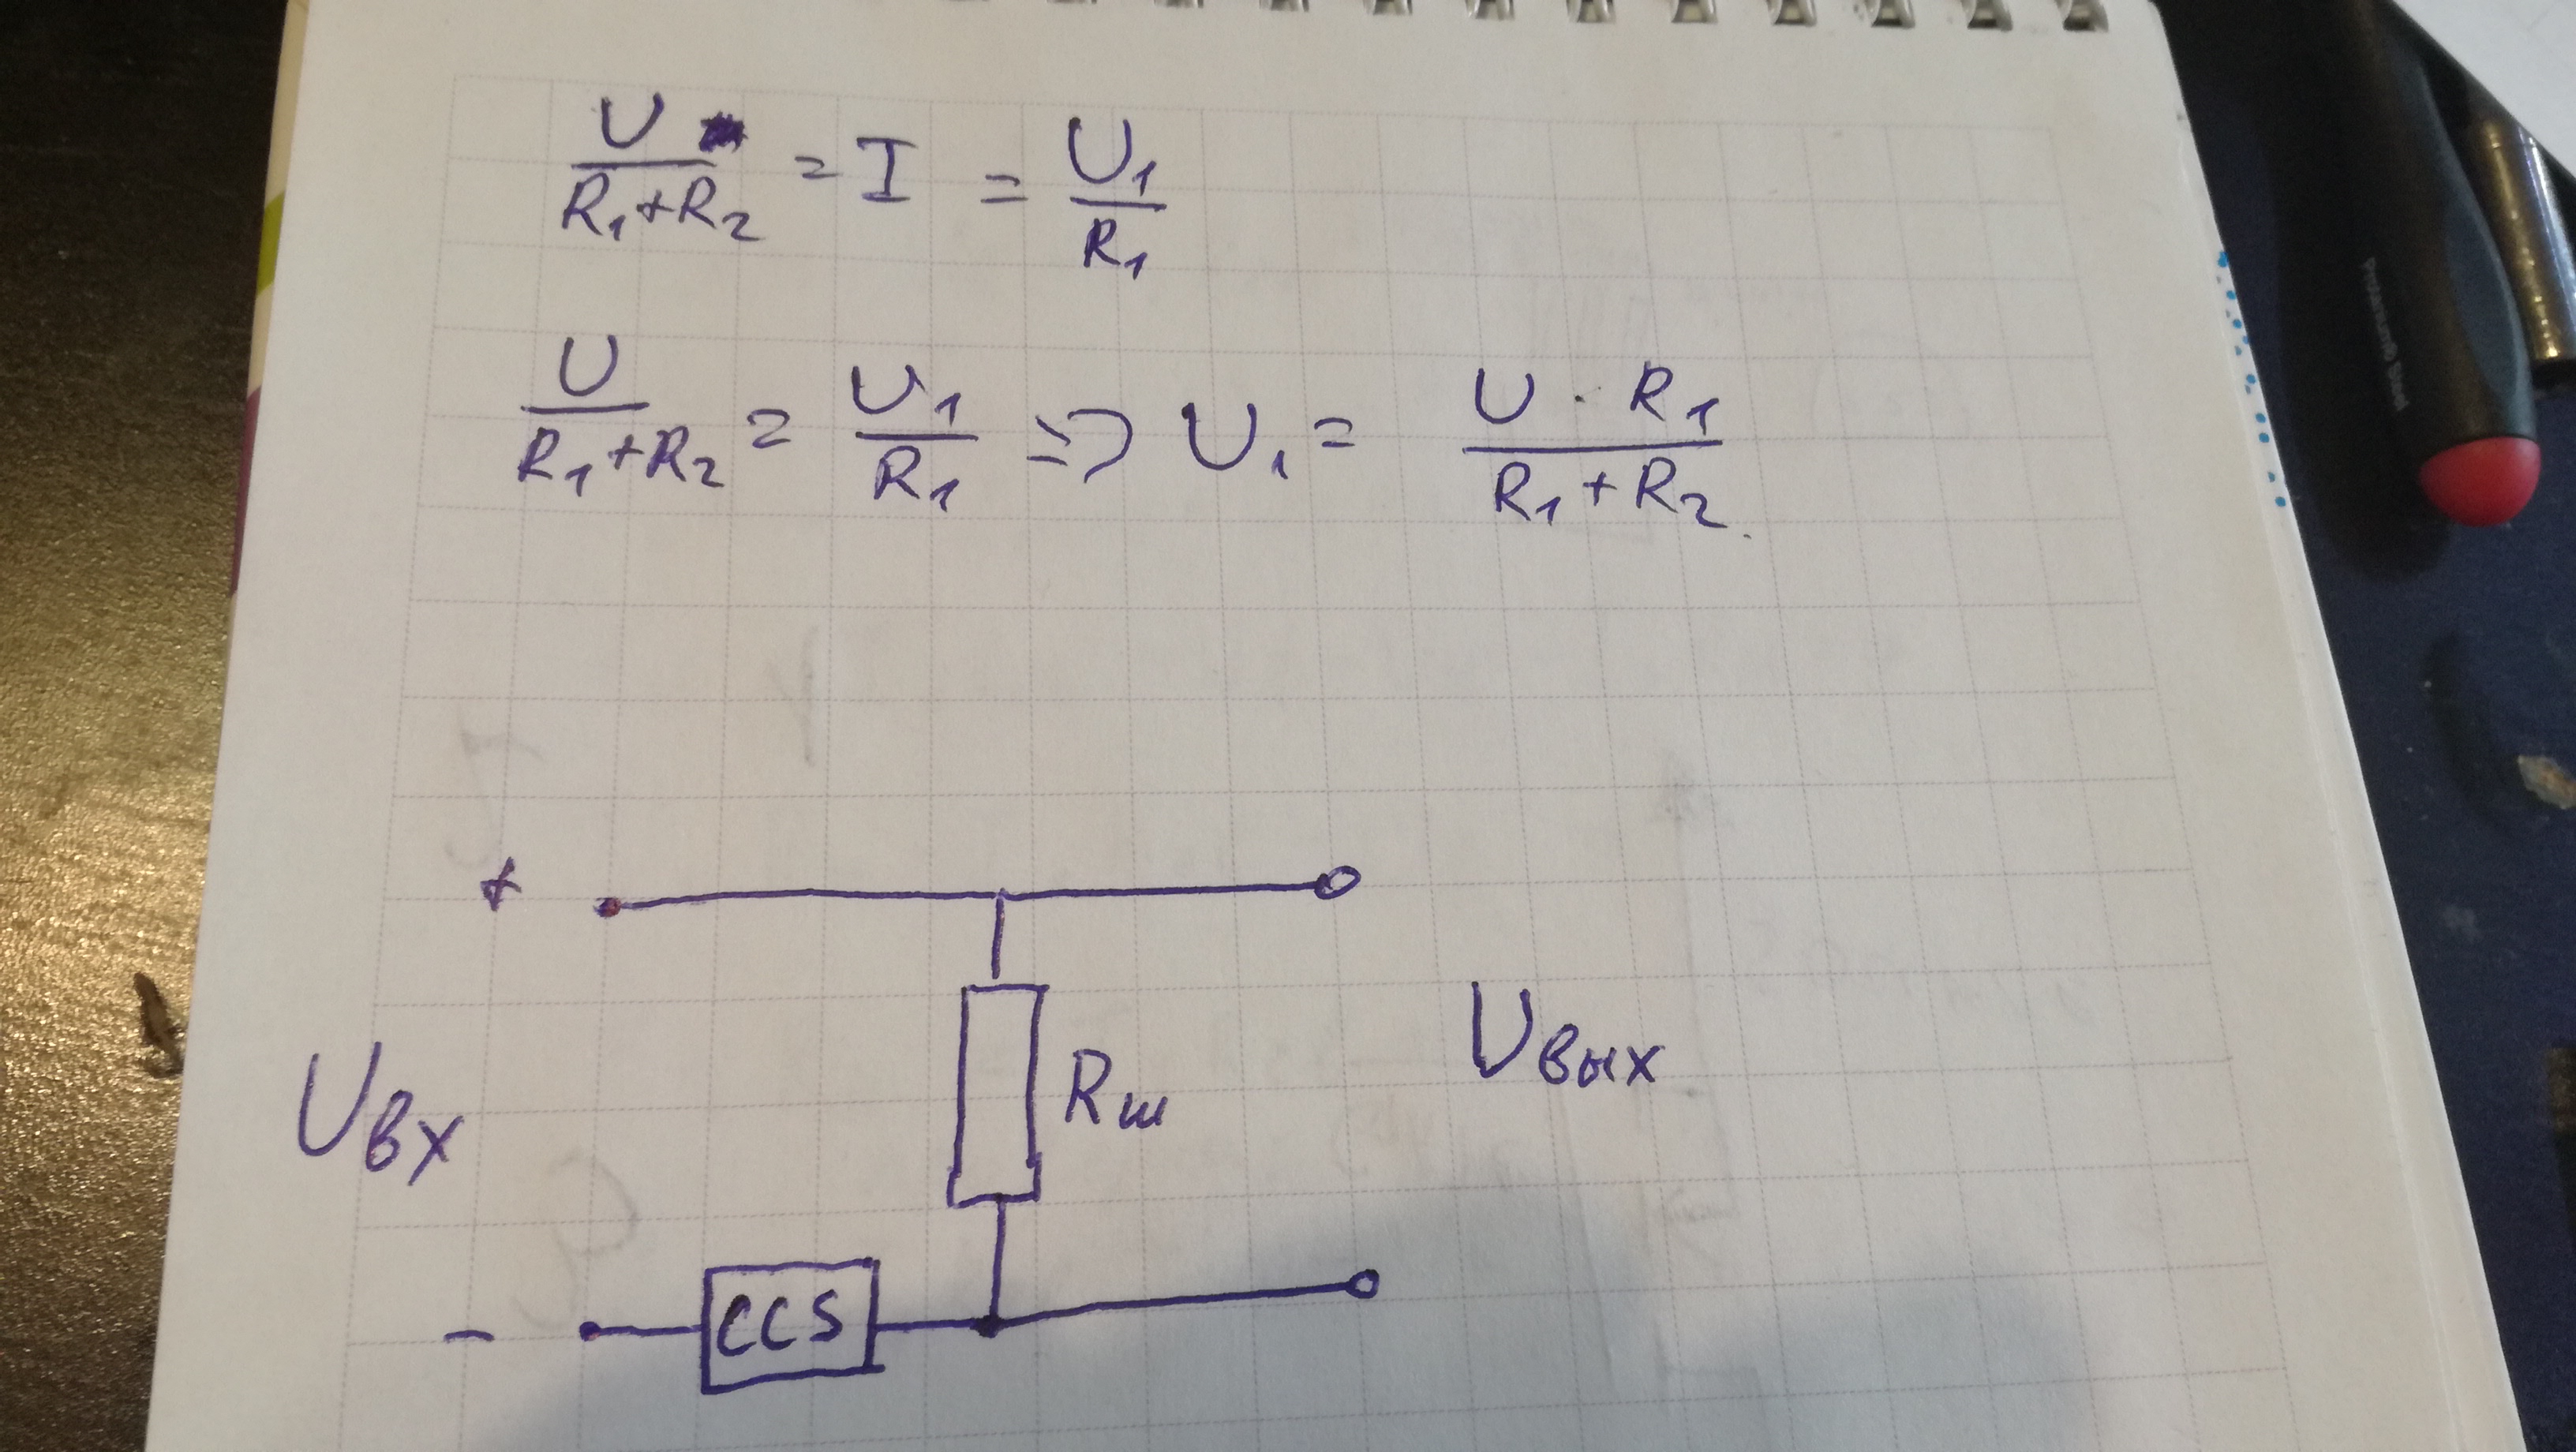 U / (R₁+R₂) = I = U₁ / R₁
U / (R₁+R₂) = U₁ / R₁ => U₁ = U · R₁ / (R₁+R₂)
+
Uвх
Rш
Uвых
- CCS